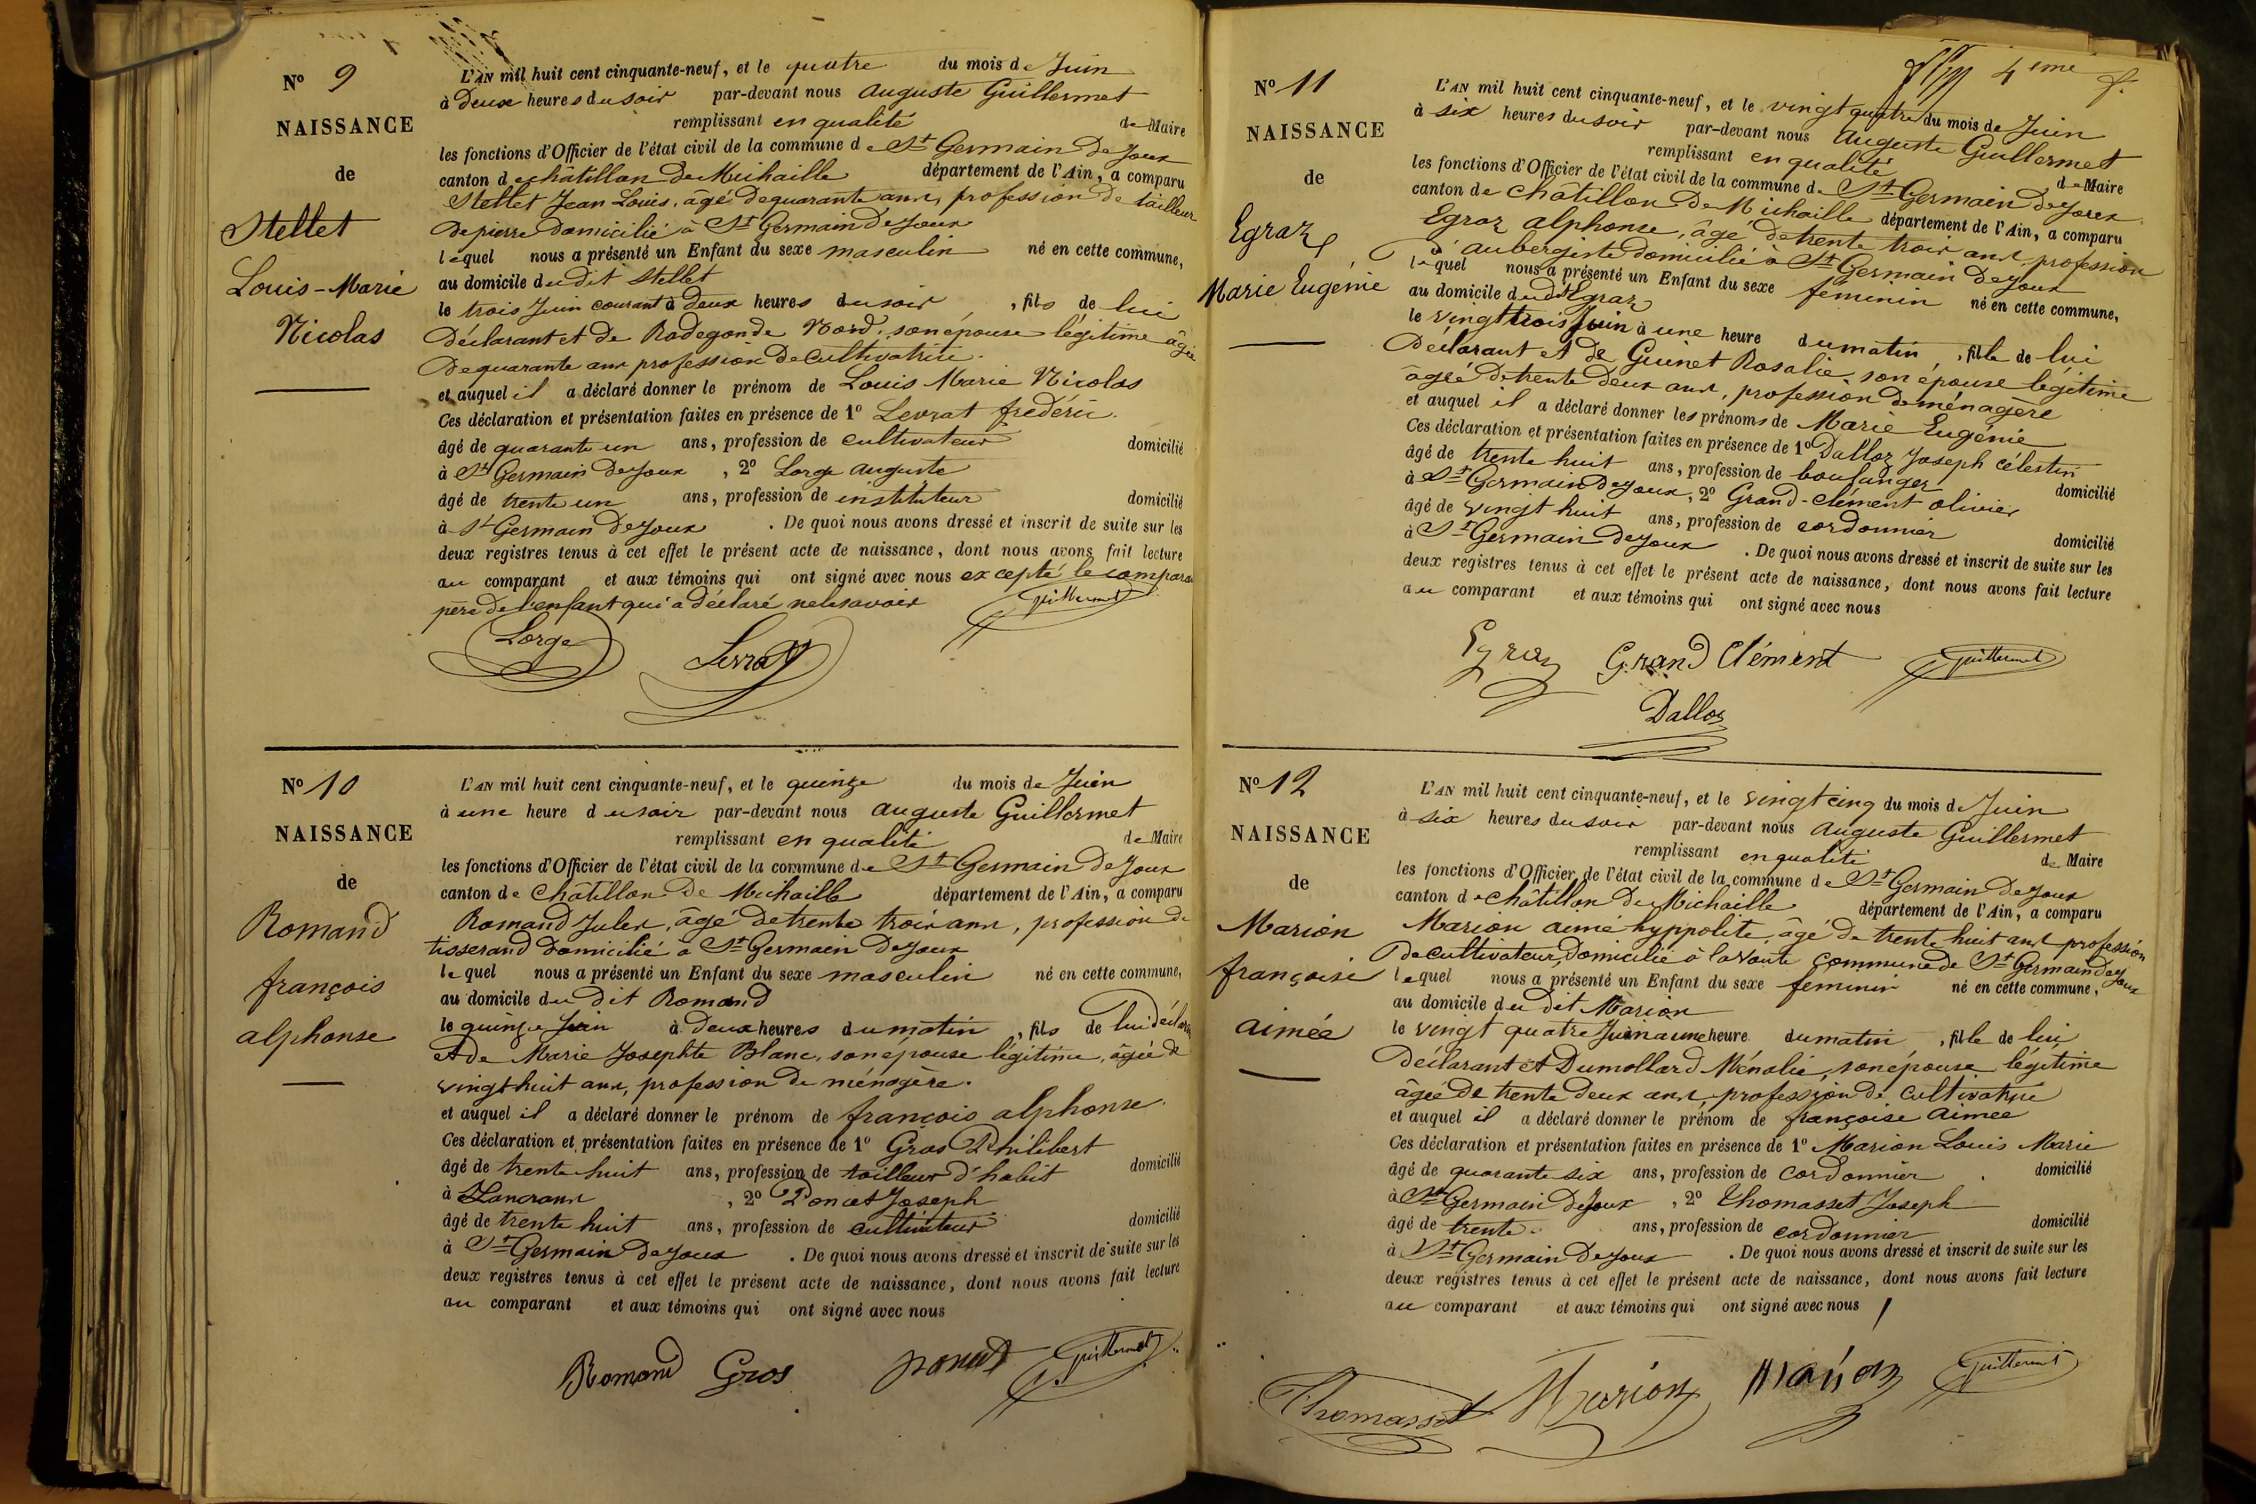 N° 9
NAISSANCE
de
Stellet
Louis-Marie
Nicolas
L'AN mil huit cent cinquante-neuf, et le quatre du mois de Juin
à Deux heures du soir par-devant nous Auguste Guillermet
remplissant en qualité de Maire
les fonctions d'Officier de l'état civil de la commune de St Germain De Joux
canton de châtillon De Michaille département de l'Ain, a comparu
Stellet Jean Louis, âgé De quarante ans, profession De tailleur
De pierre Domicilié à St Germain De Joux
lequel nous a présenté un Enfant du sexe masculin né en cette commune,
au domicile du Dit Stellet
le trois Juin courant à Deux heures du soir, fils de lui
Déclarant et de Radegonde Nord, son épouse légitime âgée
De quarante ans profession De cultivatrice.
et auquel il a déclaré donner le prénom de Louis Marie Nicolas
Ces déclaration et présentation faites en présence de 1° Levrat frédéric.
âgé de quarante un ans, profession de cultivateur domicilié
à St Germain De Joux, 2° Lorge Auguste
âgé de trente un ans, profession de instituteur domicilié
à St Germain De Joux. De quoi nous avons dressé et inscrit de suite sur les
deux registres tenus à cet effet le présent acte de naissance, dont nous avons fait lecture
au comparant et aux témoins qui ont signé avec nous excepté le comparant
père De l'enfant qui a déclaré ne le savoir
Guillermet
Lorge Levrat
N° 10
NAISSANCE
de
Romand
françois
alphonse
L'AN mil huit cent cinquante-neuf, et le quinze du mois de Juin
à une heure du soir par-devant nous Auguste Guillermet
remplissant en qualité de Maire
les fonctions d'Officier de l'état civil de la commune de St Germain De Joux
canton de Châtillon De Michaille département de l'Ain, a comparu
Romand Jules, âgé De trente trois ans, profession De
tisserand Domicilié à St Germain De Joux
lequel nous a présenté un Enfant du sexe masculin né en cette commune,
au domicile du Dit Romand
le quinze Juin à Deux heures du matin, fils de lui Déclarant
Et De Marie Josephte Blanc, son épouse légitime, âgée De
vingt huit ans, profession De ménagère.
et auquel il a déclaré donner le prénom de françois alphonse.
Ces déclaration et présentation faites en présence de 1° Gros Philibert
âgé de trente huit ans, profession de tailleur d'habit domicilié
à Lancrans, 2° Poncet Joseph
âgé de trente huit ans, profession de cultivateur domicilié
à St Germain De Joux. De quoi nous avons dressé et inscrit de suite sur les
deux registres tenus à cet effet le présent acte de naissance, dont nous avons fait lecture
au comparant et aux témoins qui ont signé avec nous
Romand Gros Poncet Guillermet
4eme f.
N° 11
NAISSANCE
de
Egraz
Marie Eugénie
L'AN mil huit cent cinquante-neuf, et le vingt quatre du mois de Juin
à six heures du soir par-devant nous Auguste Guillermet
remplissant en qualité de Maire
les fonctions d'Officier de l'état civil de la commune de St Germain De Joux
canton de Châtillon De Michaille département de l'Ain, a comparu
Egraz alphonse, âgé De trente trois ans, profession
d'aubergiste Domicilié à St Germain De Joux
lequel nous a présenté un Enfant du sexe féminin né en cette commune,
au domicile du dit Egraz
le vingt trois Juin à une heure du matin, fille de lui
Déclarant Et De Guinet Rosalie, son épouse légitime
âgée De trente Deux ans, profession De ménagère
et auquel il a déclaré donner les prénoms de Marie Eugénie
Ces déclaration et présentation faites en présence de 1° Dalloz Joseph célestin
âgé de trente huit ans, profession de boulanger domicilié
à St Germain De Joux, 2° Grand-Clément Olivier
âgé de vingt huit ans, profession de cordonnier domicilié
à St Germain De Joux. De quoi nous avons dressé et inscrit de suite sur les
deux registres tenus à cet effet le présent acte de naissance, dont nous avons fait lecture
au comparant et aux témoins qui ont signé avec nous
Egraz Grand Clément Guillermet
Dalloz
N° 12
NAISSANCE
de
Marion
françoise
aimée
L'AN mil huit cent cinquante-neuf, et le vingt cinq du mois de Juin
à six heures du soir par-devant nous Auguste Guillermet
remplissant en qualité de Maire
les fonctions d'Officier de l'état civil de la commune de St Germain De Joux
canton de châtillon De Michaille département de l'Ain, a comparu
Marion aimé hyppolite, âgé De trente huit ans profession
De cultivateur, Domicilié à la voute Commune de St Germain De Joux
lequel nous a présenté un Enfant du sexe féminin né en cette commune,
au domicile du dit Marion
le vingt quatre Juin à une heure du matin, fille de lui
Déclarant Et Dumollard Ménalie, son épouse légitime
âgée De trente Deux ans, profession De cultivatrice
et auquel il a déclaré donner le prénom de françoise aimée
Ces déclaration et présentation faites en présence de 1° Marion Louis Marie
âgé de quarante six ans, profession de cordonnier domicilié
à St Germain De Joux, 2° Thomasset Joseph
âgé de trente. ans, profession de cordonnier domicilié
à St Germain De Joux. De quoi nous avons dressé et inscrit de suite sur les
deux registres tenus à cet effet le présent acte de naissance, dont nous avons fait lecture
au comparant et aux témoins qui ont signé avec nous
Thomasset Marion Marion Guillermet